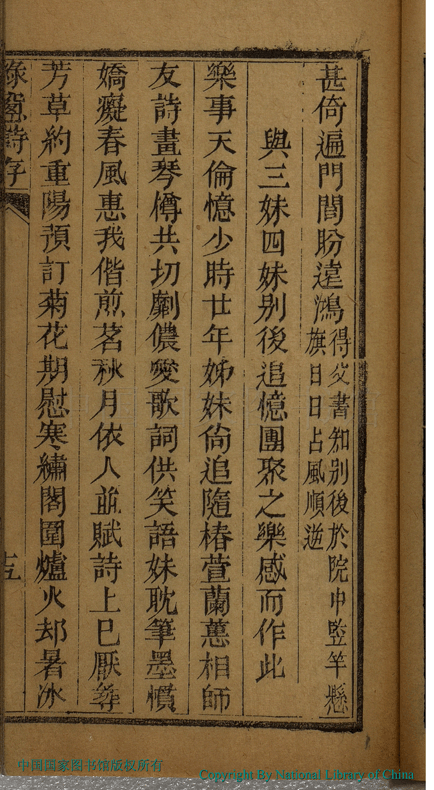 甚倚遍門閭盼遠鴻得父書知別後於院中監竿懸
旗日日占風順逆
與三妹四妹别後追憶團聚之樂感而作此
樂事天倫憶少時廿年姊妹尙追隨椿萱蘭蕙相師
友詩畫琴樽共切劘儂愛歌詞供笑語妹耽筆墨慣
嬌癡春風惠我偕煎茗秋月依人並賦詩上巳厭尋
芳草約重陽預訂菊花期慰寒繡閣圍爐火却暑冰
綠窗詩存
十五
中国国家图书馆版权所有
Copyright By National Library of China